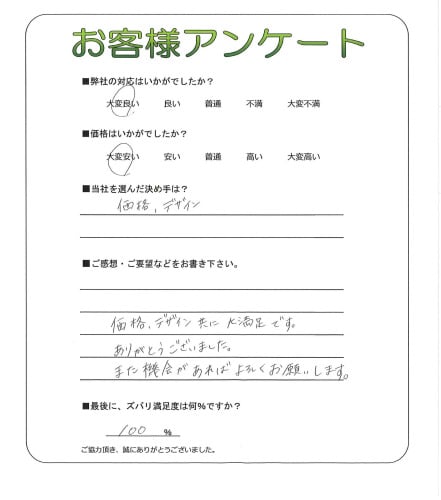 お客様アンケート
■弊社の対応はいかがでしたか?
大変良い 良い 普通 不満 大変不満
■価格はいかがでしたか?
大変安い 安い 普通 高い 大変高い
■当社を選んだ決め手は?
価格、デザイン
■ご感想・ご要望などをお書き下さい。
価格、デザイン共に大満足です。
ありがとうございました。
また機会があればよろしくお願いします。
■最後に、ズバリ満足度は何%ですか?
100 %
ご協力頂き、誠にありがとうございました。